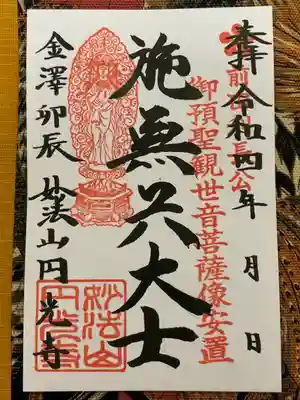 奉拝 令和四年 月 日
前 長公
御預聖観世音菩薩像安置
施無畏大士
金澤卯辰 妙法山円光寺
妙法山
円光寺